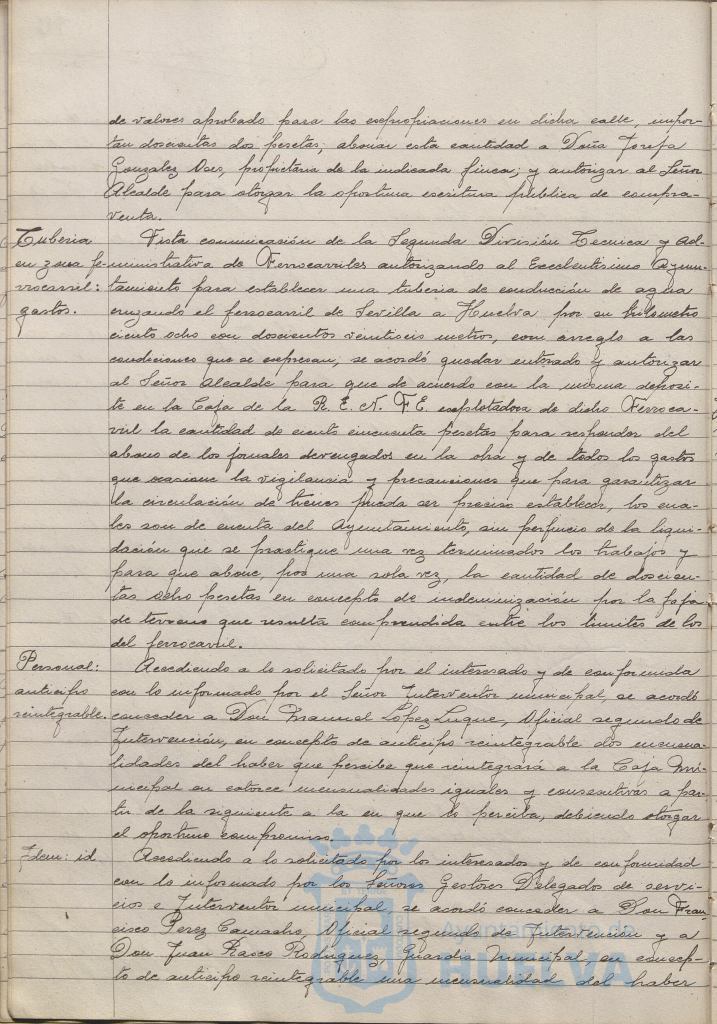 de valores aprobado para las expropiaciones en dicha calle, impor-
tan doscientas dos pesetas; abonar esta cantidad a Doña Josefa
Gonzalez Oses, propietaria de la indicada finca; y autorizar al Señor
Alcalde para otorgar la oportuna escritura pública de compra-
venta.
Tuberia
en zona fe-
rrocarril:
gastos.
Vista comunicación de la Segunda División Tecnica y Ad-
ministrativa de Ferrocarriles autorizando al Excelentisimo Ayun-
tamiento para establecer una tuberia de conducción de agua
cruzando el ferrocarril de Sevilla a Huelva por su kilometro
ciento ocho con doscientos veintiseis metros, con arreglo a las
condiciones que se expresan, se acordó quedar enterado y autorizar
al Señor Alcalde para que de acuerdo con la misma deposi-
te en la Caja de la R.E.N.F.E. explotadora de dicho Ferroca-
rril la cantidad de ciento cincuenta pesetas para responder del
abono de los jornales devengados en la obra y de todos los gastos
que ocasione la vigilancia y precauciones que para garantizar
la circulación de trenes pueda ser preciso establecer, los cua-
les son de cuenta del Ayuntamiento, sin perjuicio de la liqui-
dación que se practique una vez terminados los trabajos y
para que abone, por una sola vez, la cantidad de doscien-
tas ocho pesetas en concepto de indemnización por la faja
de terreno que resulta comprendida entre los limites de los
del ferrocarril.
Personal:
anticipo
reintegrable.
Accediendo a lo solicitado por el interesado y de conformida
con lo informado por el Señor Interventor municipal, se acordó
conceder a Don Manuel López Luque, Oficial segundo de
Intervención, en concepto de anticipo reintegrable dos mensua-
lidades del haber que percibe que reintegrará a la Caja Mu-
nicipal en catorce mensualidades iguales y consecutivas a par-
tir de la siguiente a la en que lo perciba, debiendo otorgar
el oportuno compromiso.
Idem: id.
Accediendo a lo solicitado por los interesados y de conformidad
con lo informado por los Señores Gestores Delegados de servi-
cios e Interventor municipal, se acordó conceder a Don Fran-
cisco Perez Camacho, Oficial segundo de Intervención y a
Don Juan Rasco Rodriguez, Guardia Municipal, en concep-
to de anticipo reintegrable una mensualidad del haber
Ayuntamiento de
HUELVA